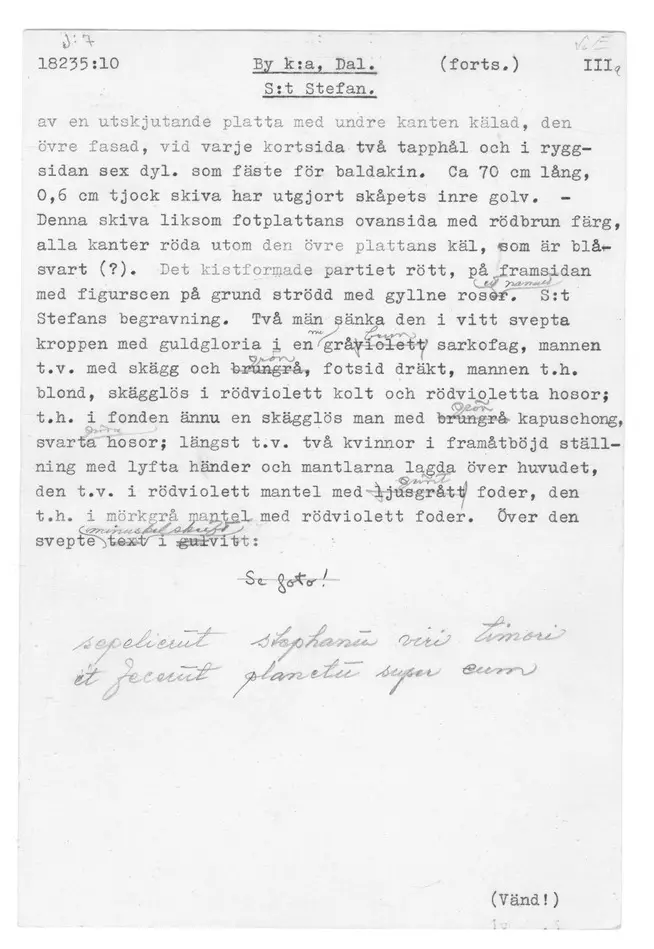 J: 7
18235:10 By k:a, Dal. (forts.) III
S:t Stefan.
av en utskjutande platta med undre kanten kälad, den
övre fasad, vid varje kortsida två tapphål och i rygg-
sidan sex dyl. som fäste för baldakin. Ca 70 cm lång,
0,6 cm tjock skiva har utgjort skåpets inre golv. -
Denna skiva liksom fotplattans ovansida med rödbrun färg,
alla kanter röda utom den övre plattans käl, som är blå-
svart (?). Det kistformade partiet rött, på framsidan
med figurscen på grund strödd med gyllne rosor. S:t
Stefans begravning. Två män sänka den i vitt svepta
brun
kroppen med guldgloria i en gråviolett sarkofag, mannen
grön
t.v. med skägg och brungrå, fotsid dräkt, mannen t.h.
blond, skägglös i rödviolett kolt och rödvioletta hosor;
grön
t.h. i fonden ännu en skägglös man med brungrå kapuschong,
gröna
svarta hosor; längst t.v. två kvinnor i framåtböjd ställ-
ning med lyfta händer och mantlarna lagda över huvudet,
grönt
den t.v. i rödviolett mantel med ljusgrått foder, den
t.h. i mörkgrå mantel med rödviolett foder. Över den
minuskelskrift
svepte text i gulvitt:
Se foto!
sepelierūt stephanū viri timori
et fecerūt planctū super eum
(Vänd!)